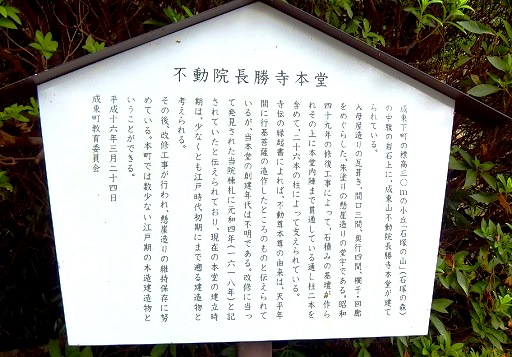 不動院長勝寺本堂
成東下町の標高三〇mの小丘「石塚の山」(石塚の森)
の中腹の岩石上に、成東山不動院長勝寺本堂が建て
られている。
入母屋造りの瓦葺き、間口三間、奥行四間、欄手・回廊
をめぐらした、朱塗りの懸崖造りの堂宇である。昭和
四十九年の修復工事によって、石積みの基壇が作ら
れその上に本堂内陣まで貫通している通し柱二本を
含めて、二十六本の柱によって支えられている。
寺伝の縁起書によれば、不動尊本尊の由来は、天平年
間に行基菩薩の造作したところのものと伝えられて
いるが、当本堂の創建年代は不明である。改修に当っ
て発見された当院棟札に元和四年(一六一八年)と記
されていたと伝えられており、現在の本堂の建立時
期は、少なくとも江戸時代初期にまで遡る建造物と
考えられる。
その後、改修工事が行われ、懸崖造りの維持保存に努
めている。本町では数少ない江戸期の木造建造物と
いうことができる。
平成十六年三月二十四日
成東町教育委員会